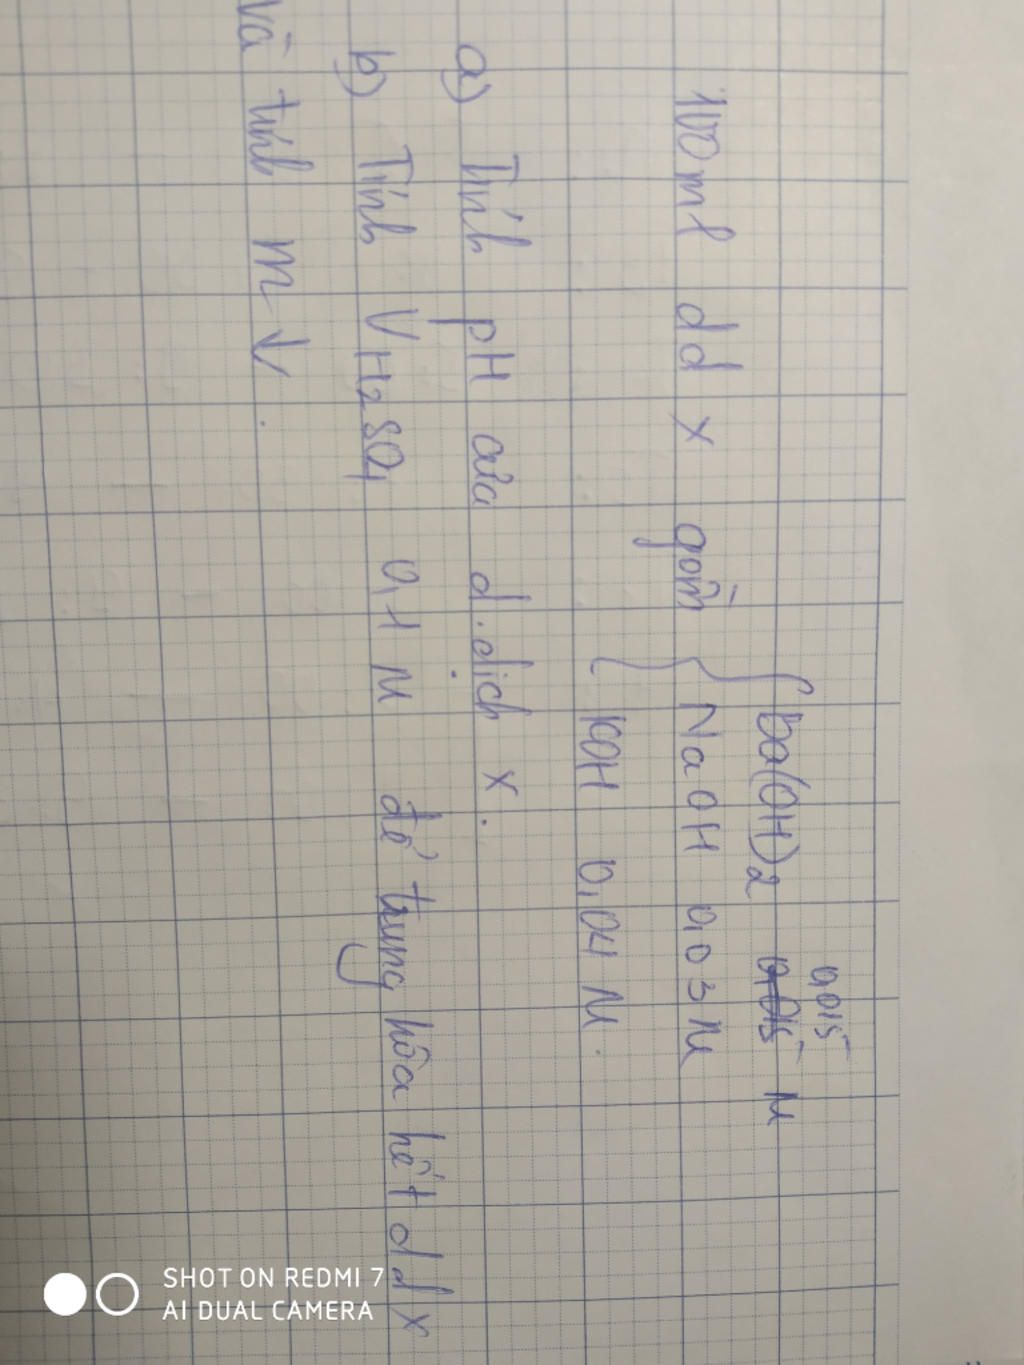 Ba(OH)2 0,015 M
100ml dd X gồm { NaOH 0,03M
KOH 0,04 M.
a) Tính pH của d.dịch X.
b) Tính VH2SO4 0,1 M để trung hòa hết dd X
và tính m↓.
SHOT ON REDMI 7
AI DUAL CAMERA